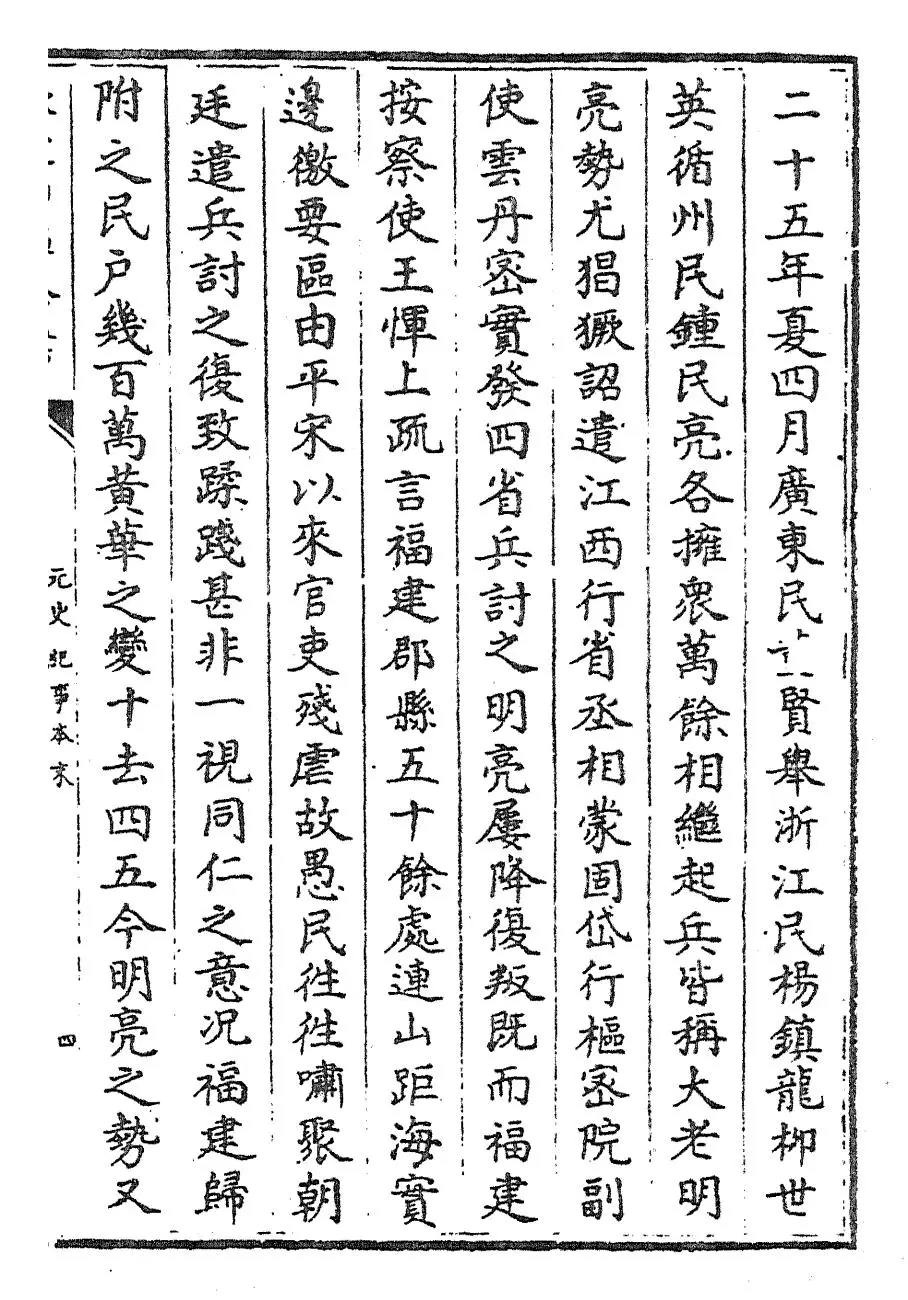 二十五年夏四月廣東民賢舉浙江民楊鎮龍柳世
英循州民鍾民亮各擁衆萬餘相繼起兵皆稱大老明
亮勢尤猖獗詔遣江西行省丞相蒙固岱行樞密院副
使雲丹密實發四省兵討之明亮屢降復叛既而福建
按察使王惲上疏言福建郡縣五十餘處連山距海實
邊徼要區由平宋以來官吏殘虐故愚民往往嘯聚朝
廷遣兵討之復致蹂踐甚非一視同仁之意况福建歸
附之民户幾百萬黄華之變十去四五今明亮之勢又
元史紀事本末
四